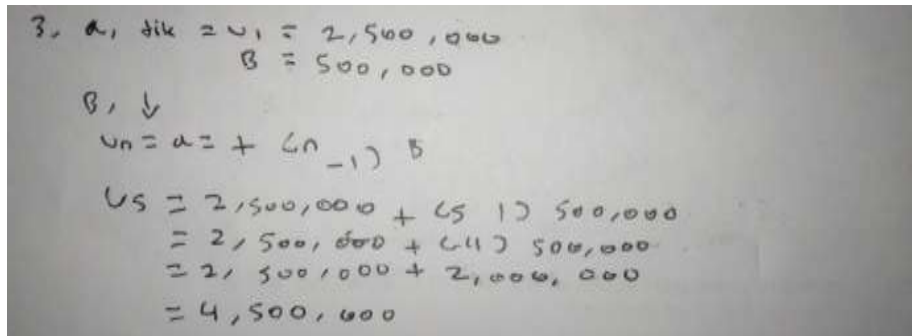 3. a, dik = U1 = 2,500,000
B = 500,000
B, ↓
Un = a = + (n -1) B
U5 = 2,500,000 + (5 1) 500,000
= 2,500,000 + (4) 500,000
= 2,500,000 + 2,000,000
= 4,500,000